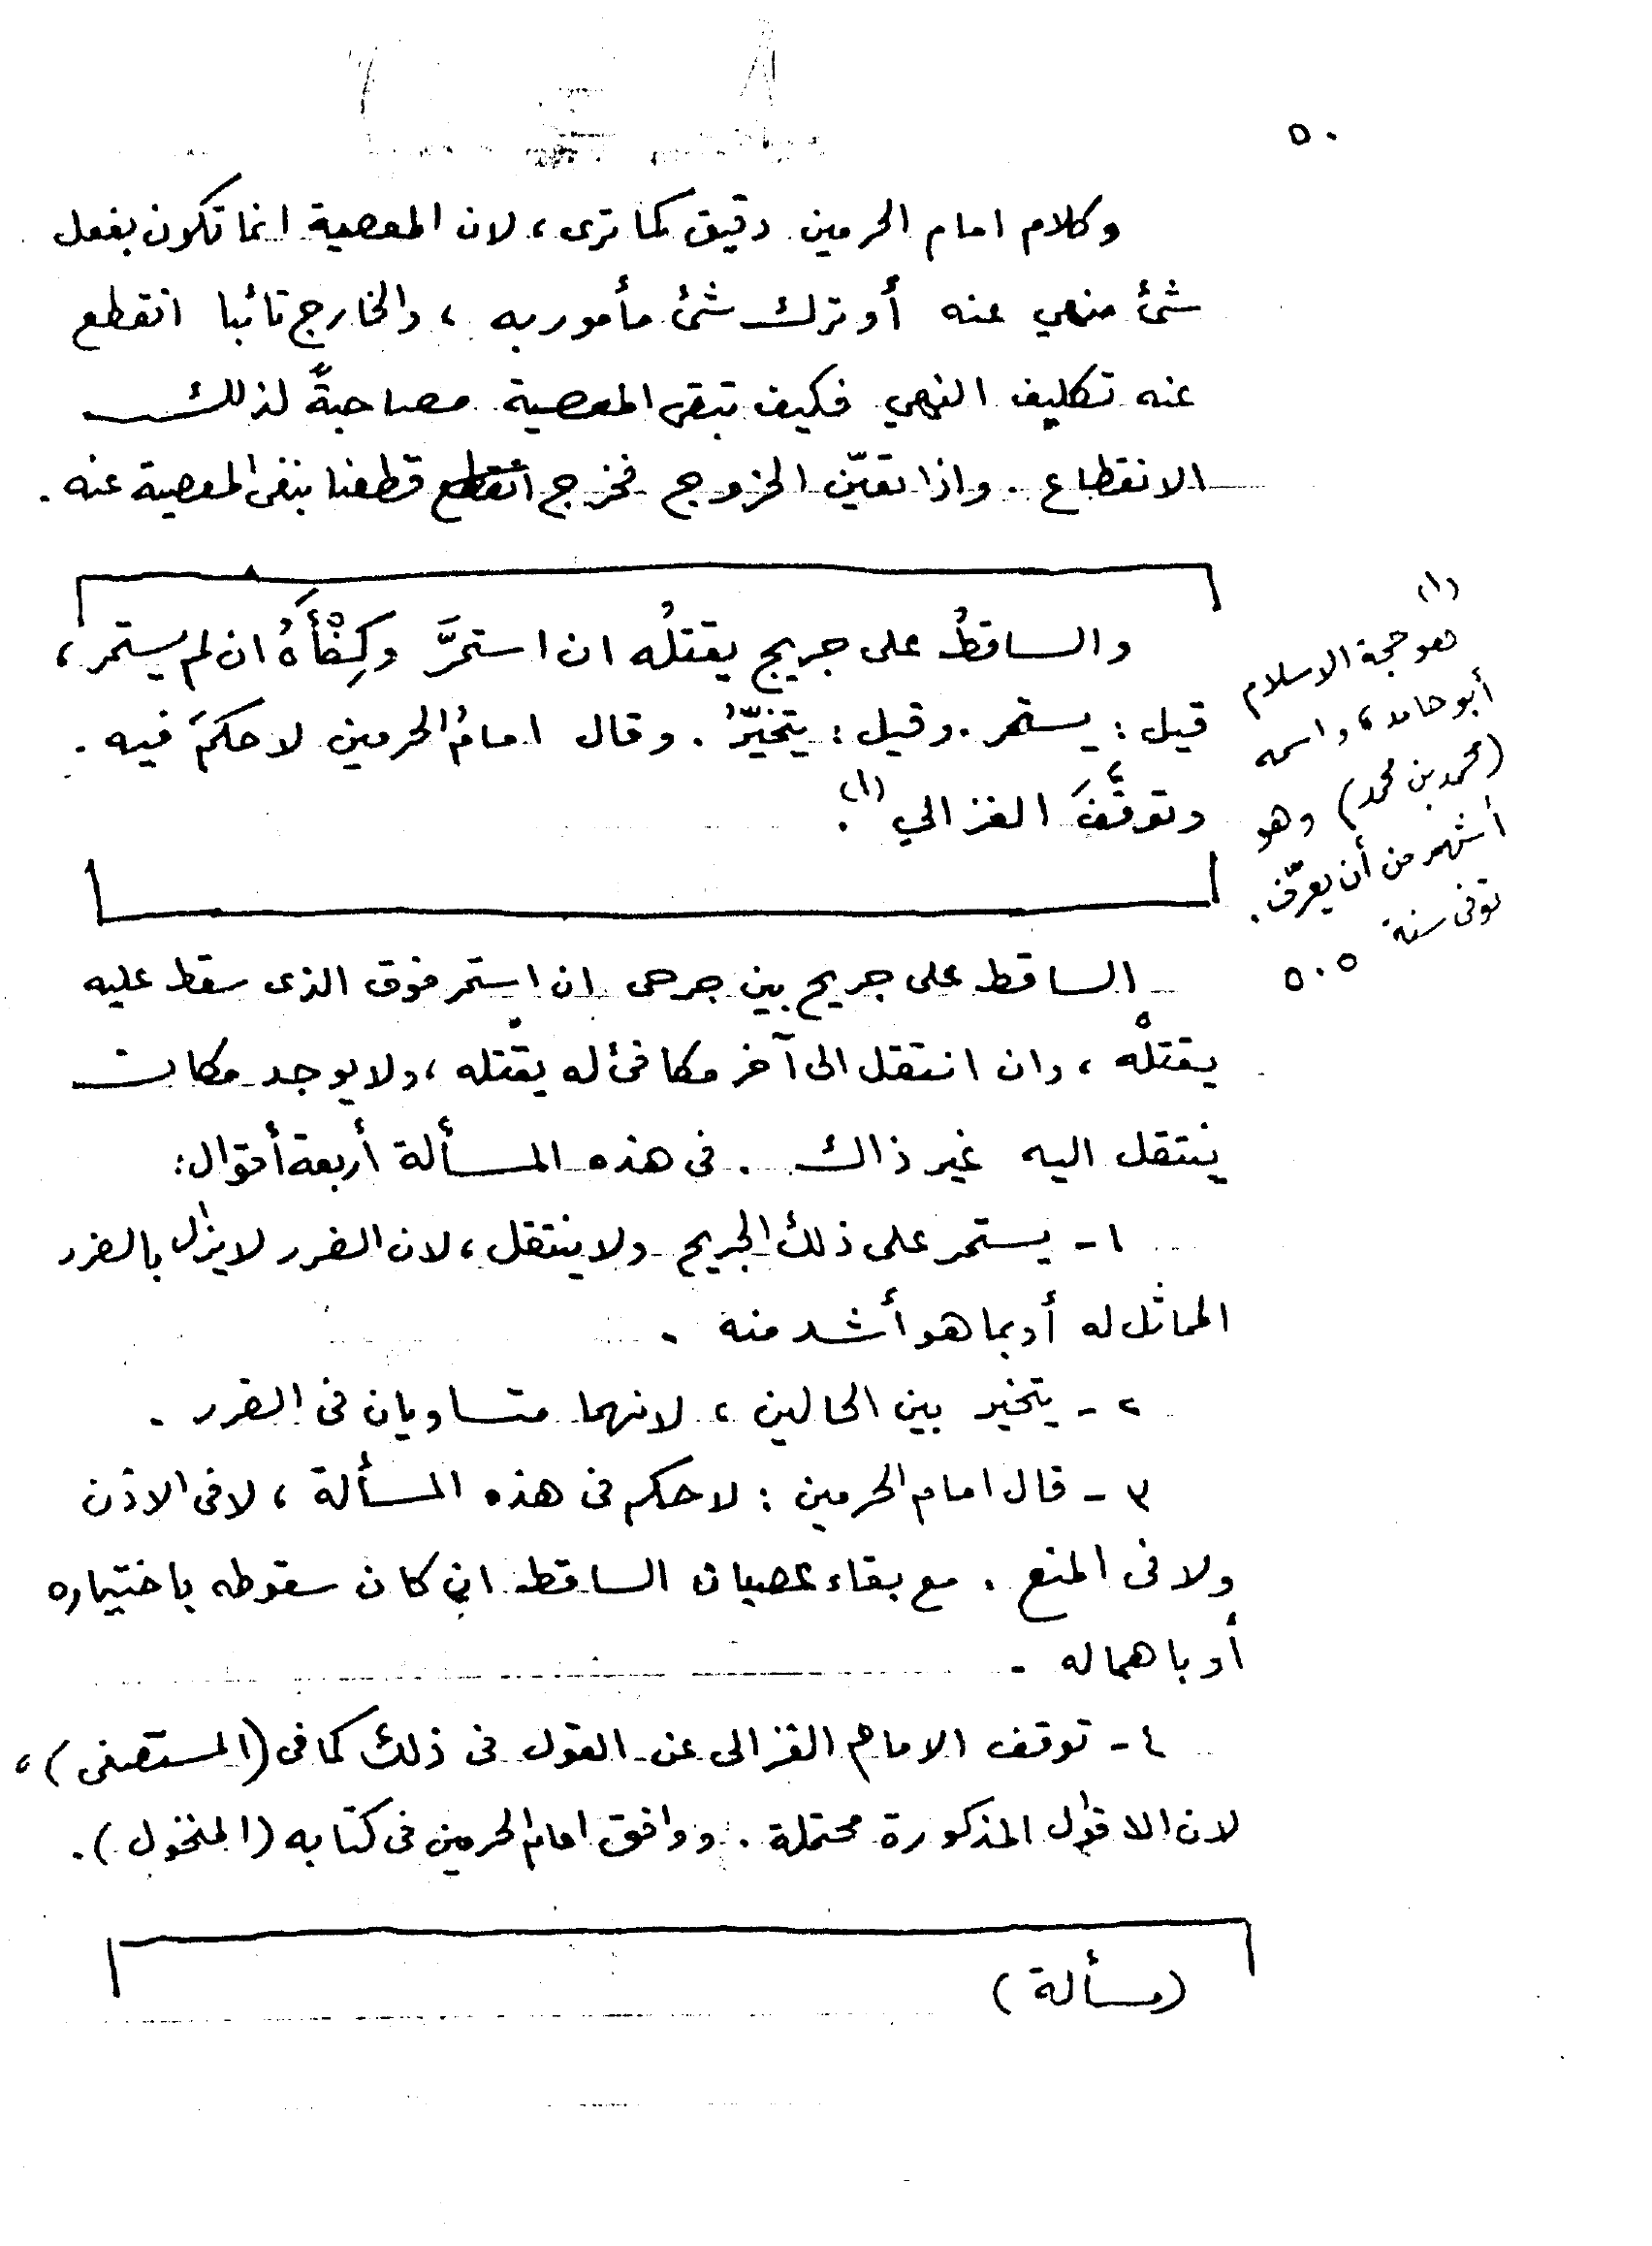 ٥٠
وكلام امام الحرمين دقيق كما ترى، لان المعصية انما تكون بفعل
شئ منهي عنه أو ترك شئ مأمور به ، والخارج تائبا انقطع
عنه تكليف النهي فكيف تبقى المعصية مصاحبةً لذلك
الانقطاع . واذا تعيّن الخروج فخرج انقطع قطعنا بنفي المعصية عنه .
والساقطُ على جريح يقتلُه ان استمرَّ وكِفْأَهُ ان لم يستمر ،
قيل : يستمر . وقيل : يتخيّرُ . وقال امامُ الحرمين لا حكمَ فيه .
وتوقَّفَ الغزالي (١) .
الساقط على جريح بين جرحى ان استمر فوق الذى سقط عليه
يقتلْه ، وان انتقل الى آخر مكافئ له يقتله ، ولا يوجد مكان
ينتقل اليه غير ذاك . فى هذه المسألة أربعة أقوال :
١ - يستمر على ذلك الجريح ولا ينتقل ، لان الضرر لا يزال بالضرر
المماثل له أو بما هو أشد منه .
٢ - يتخير بين الحالين ، لانهما متساويان فى الضرر .
٣ - قال امام الحرمين : لا حكم فى هذه المسألة ، لا فى الاذن
ولا فى المنع . مع بقاء عصيان الساقط ان كان سقوطه باختياره
أو باهماله .
٤ - توقف الامام الغزالى عن القول فى ذلك كما فى (المستصفى) ،
لان الاقوال المذكورة محتملة . ووافق امام الحرمين فى كتابه (المنخول) .
(مسألة)
(١)
هو حجة الاسلام
أبو حامد ، واسمه
(محمد بن محمد) وهو
اشهر من أن يعرّف .
توفى سنة
٥٠٥